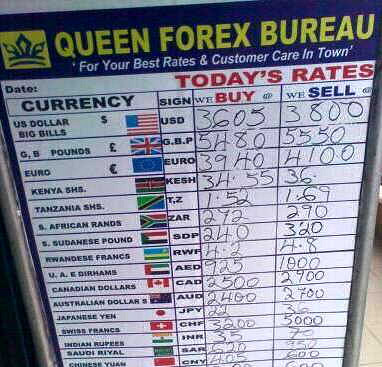 QUEEN FOREX BUREAU
'For Your Best Rates & Customer Care In Town'
Date: TODAY'S RATES
CURRENCY SIGN WE BUY @ WE SELL @
US DOLLAR BIG BILLS $ USD 3605 3800
G, B POUNDS £ G.B.P 5480 5550
EURO € EURO 3940 4100
KENYA SHS. KESH 34.55 36
TANZANIA SHS. T,Z 1.52 1.69
S. AFRICAN RANDS ZAR 272 290
S. SUDANESE POUND SDP 240 320
RWANDESE FRANCS RWF 4.2 4.8
U. A. E DIRHAMS AED 925 1000
CANADIAN DOLLARS CAD 2500 2900
AUSTRALIAN DOLLAR S AUD 2400 2700
JAPANESE YEN JPY 36
SWISS FRANCS CHF 3200 3000
INDIAN RUPEES INR 35 70
SAUDI RIYAL SAR 950
CHINESE YUAN CNY 405 600